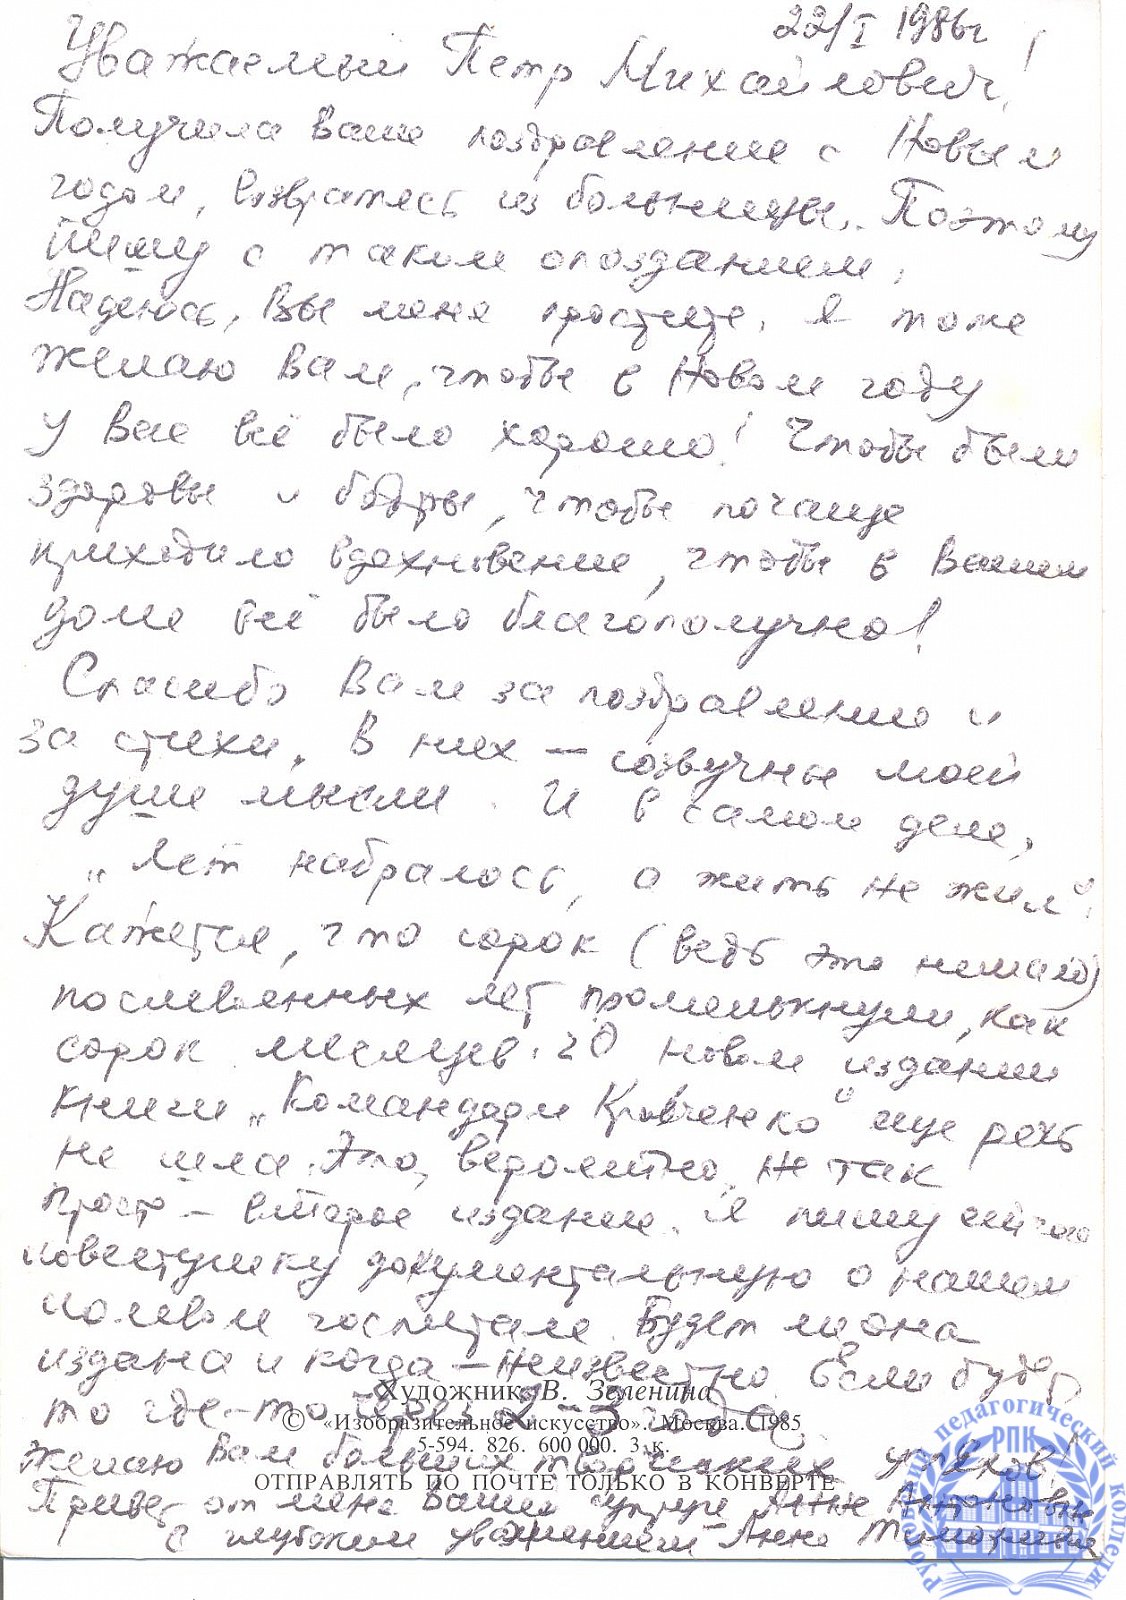 22/I 1986г
Уважаемый Петр Михайлович!
Получила Ваше поздравление с Новым
годом, возвратясь из больницы. Поэтому
пишу с таким опозданием.
Надеюсь, Вы меня простите. Я тоже
желаю Вам, чтобы в Новом году
у Вас всё было хорошо! Чтобы были
здоровы и бодры, чтобы почаще
приходило вдохновение, чтобы в Вашем
доме всё было благополучно!
Спасибо Вам за поздравление и
за стихи. В них — созвучные моей
душе мысли. И в самом деле,
„Лет набралось, а жить не жил“.
Кажется, что сорок (ведь это немало)
послевоенных лет промелькнули, как
сорок месяцев. О новом издании
книги „Командарм Кравченко“ еще речь
не шла. Это, вероятно, не так
просто — второе издание. Я пишу сейчас
повестушку документальную о нашем
полевом госпитале. Будет ли она
издана и когда — неизвестно. Если будет,
Художник В. Зеленина
то где-то через 2-3 года.
© «Изобразительное искусство». Москва. 1985
5-594. 826. 600 000. 3 к.
Желаю Вам больших творческих успехов!
ОТПРАВЛЯТЬ ПО ПОЧТЕ ТОЛЬКО В КОНВЕРТЕ
Привет от меня Вашей супруге Анне Антоновне
С глубоким уважением Анна
Рубцовский педагогический колледж
РПК